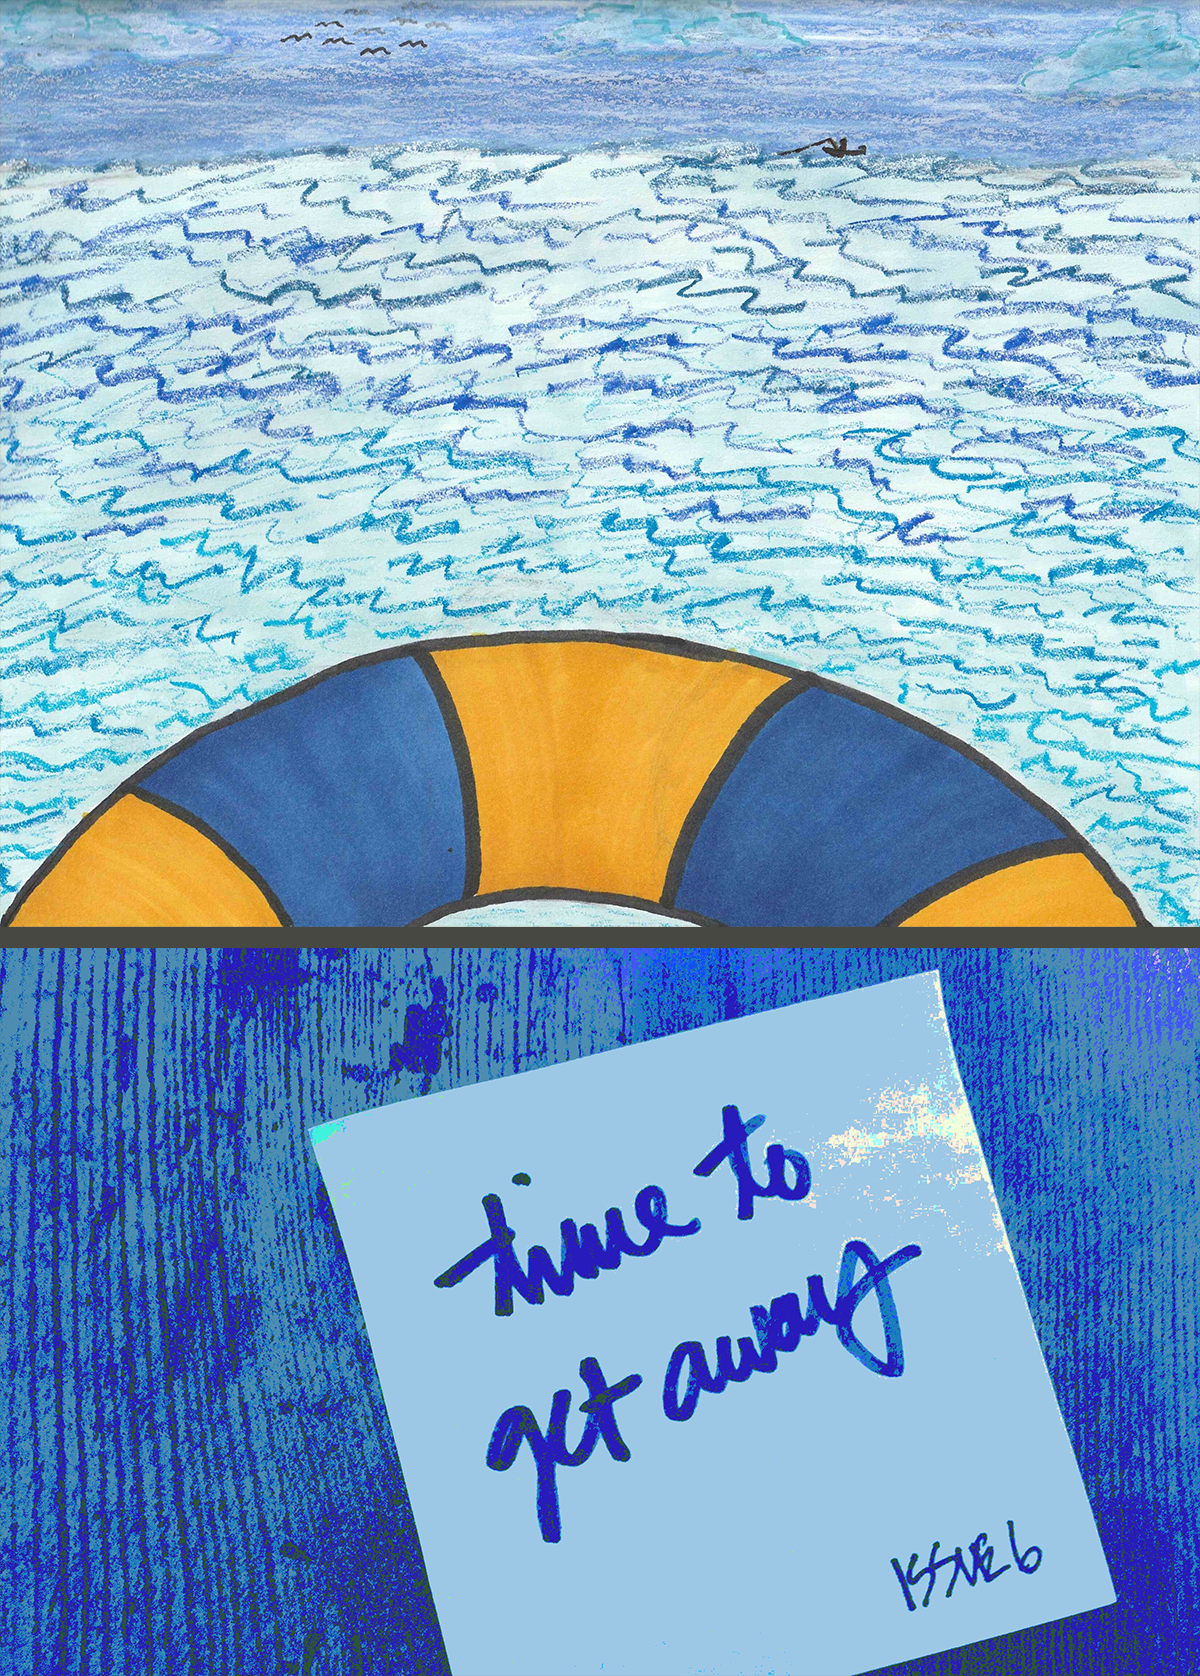 time to
get away
ISSUE 6